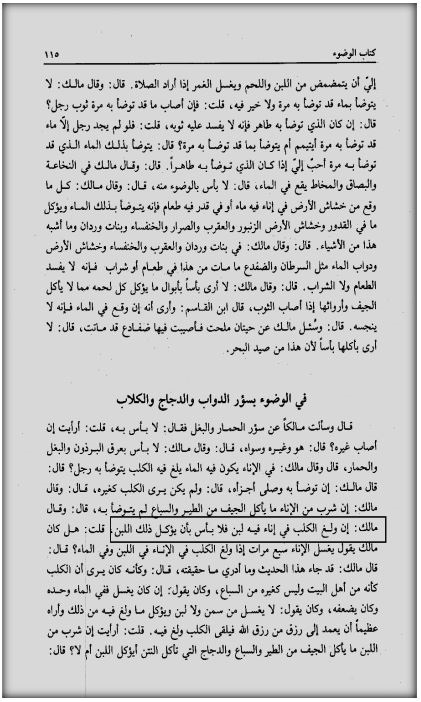 كتاب الوضوء ١١٥
إليّ أن يتمضمض من اللبن واللحم ويغسل الغمر إذا أراد الصلاة. قال: وقال مالك: لا
يتوضأ بماء قد توضأ به مرة ولا خير فيه، قلت: فإن أصاب ما قد توضأ به مرة ثوب رجل؟
قال: إن كان الذي توضأ به طاهر فإنه لا يفسد عليه ثوبه، قلت: فلو لم يجد رجل إلّا ماء
قد توضأ به مرة أيتيمم أم يتوضأ بما قد توضأ به مرة؟ قال: يتوضأ بذلك الماء الذي قد
توضأ به مرة أحبّ إليّ إذا كان الذي توضأ به طاهراً. قال: وقال مالك في النخاعة
والبصاق والمخاط يقع في الماء، قال: لا بأس بالوضوء منه، قال: وقال مالك: كل ما
وقع من خشاش الأرض في إناء فيه ماء أو في قدر فيه طعام فإنه يتوضأ بذلك الماء ويؤكل
ما في القدور وخشاش الأرض الزنبور والعقرب والصرار والخنفساء وبنات وردان وما أشبه
هذا من الأشياء. قال: وقال مالك: في بنات وردان والعقرب والخنفساء وخشاش الأرض
ودواب الماء مثل السرطان والضفدع ما مات من هذا في طعام أو شراب فإنه لا يفسد
الطعام ولا الشراب. قال: وقال مالك: لا أرى بأساً بأبوال ما يؤكل كل لحمه مما لا يأكل
الجيف وأرواثها إذا أصاب الثوب، قال ابن القاسم: وأرى أنه إن وقع في الماء فإنه لا
ينجسه. قال: وسُئل مالك عن حيتان ملحت فأصيبت فيها ضفادع قد ماتت، قال: لا
أرى بأكلها بأساً لأن هذا من صيد البحر.
في الوضوء بسؤر الدواب والدجاج والكلاب
قال وسألت مالكاً عن سؤر الحمار والبغل فقال: لا بأس به، قلت: أرأيت إن
أصاب غيره؟ قال: هو وغيره وسواه، قال: وقال مالك: لا بأس بعرق البرذون والبغل
والحمار، قال وقال مالك: في الإناء يكون فيه الماء يلغ فيه الكلب يتوضأ به رجل؟ قال:
قال مالك: إن توضأ به وصلى أجزأه، قال: ولم يكن يرى الكلب كغيره، قال: وقال
مالك: إن شرب من الإناء ما يأكل الجيف من الطير والسباع لم يتوضأ به، قال: وقال
مالك: إن ولغ الكلب في إناء فيه لبن فلا بأس بأن يؤكل ذلك اللبن. قلت: هل كان
مالك يقول يغسل الإناء سبع مرات إذا ولغ الكلب في الإناء في اللبن وفي الماء؟ قال:
قال مالك: قد جاء هذا الحديث وما أدري ما حقيقته، قال: وكأنه كان يرى أن الكلب
كأنه من أهل البيت وليس كغيره من السباع، وكان يقول: إن كان يغسل ففي الماء وحده
وكان يضعفه، وكان يقول: لا يغسل من سمن ولا لبن ويؤكل ما ولغ فيه من ذلك وأراه
عظيماً أن يعمد إلى رزق من رزق الله فيلقى الكلب ولغ فيه. قلت: أرأيت إن شرب من
اللبن ما يأكل الجيف من الطير والسباع والدجاج التي تأكل النتن أيؤكل اللبن أم لا؟ قال: